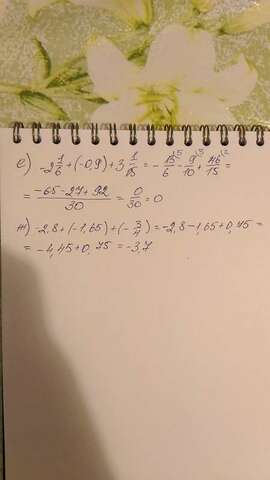 е) -2 1/6 + (-0,9) + 3 1/15 = - 13/6 ⁵ - 9/10 ³ + 46/15 ² =
= (-65 - 27 + 92)/30 = 0/30 = 0
ж) -2,8 + (-1,65) + (- 3/4) = -2,8 - 1,65 + 0,75 =
= -4,45 + 0,75 = -3,7